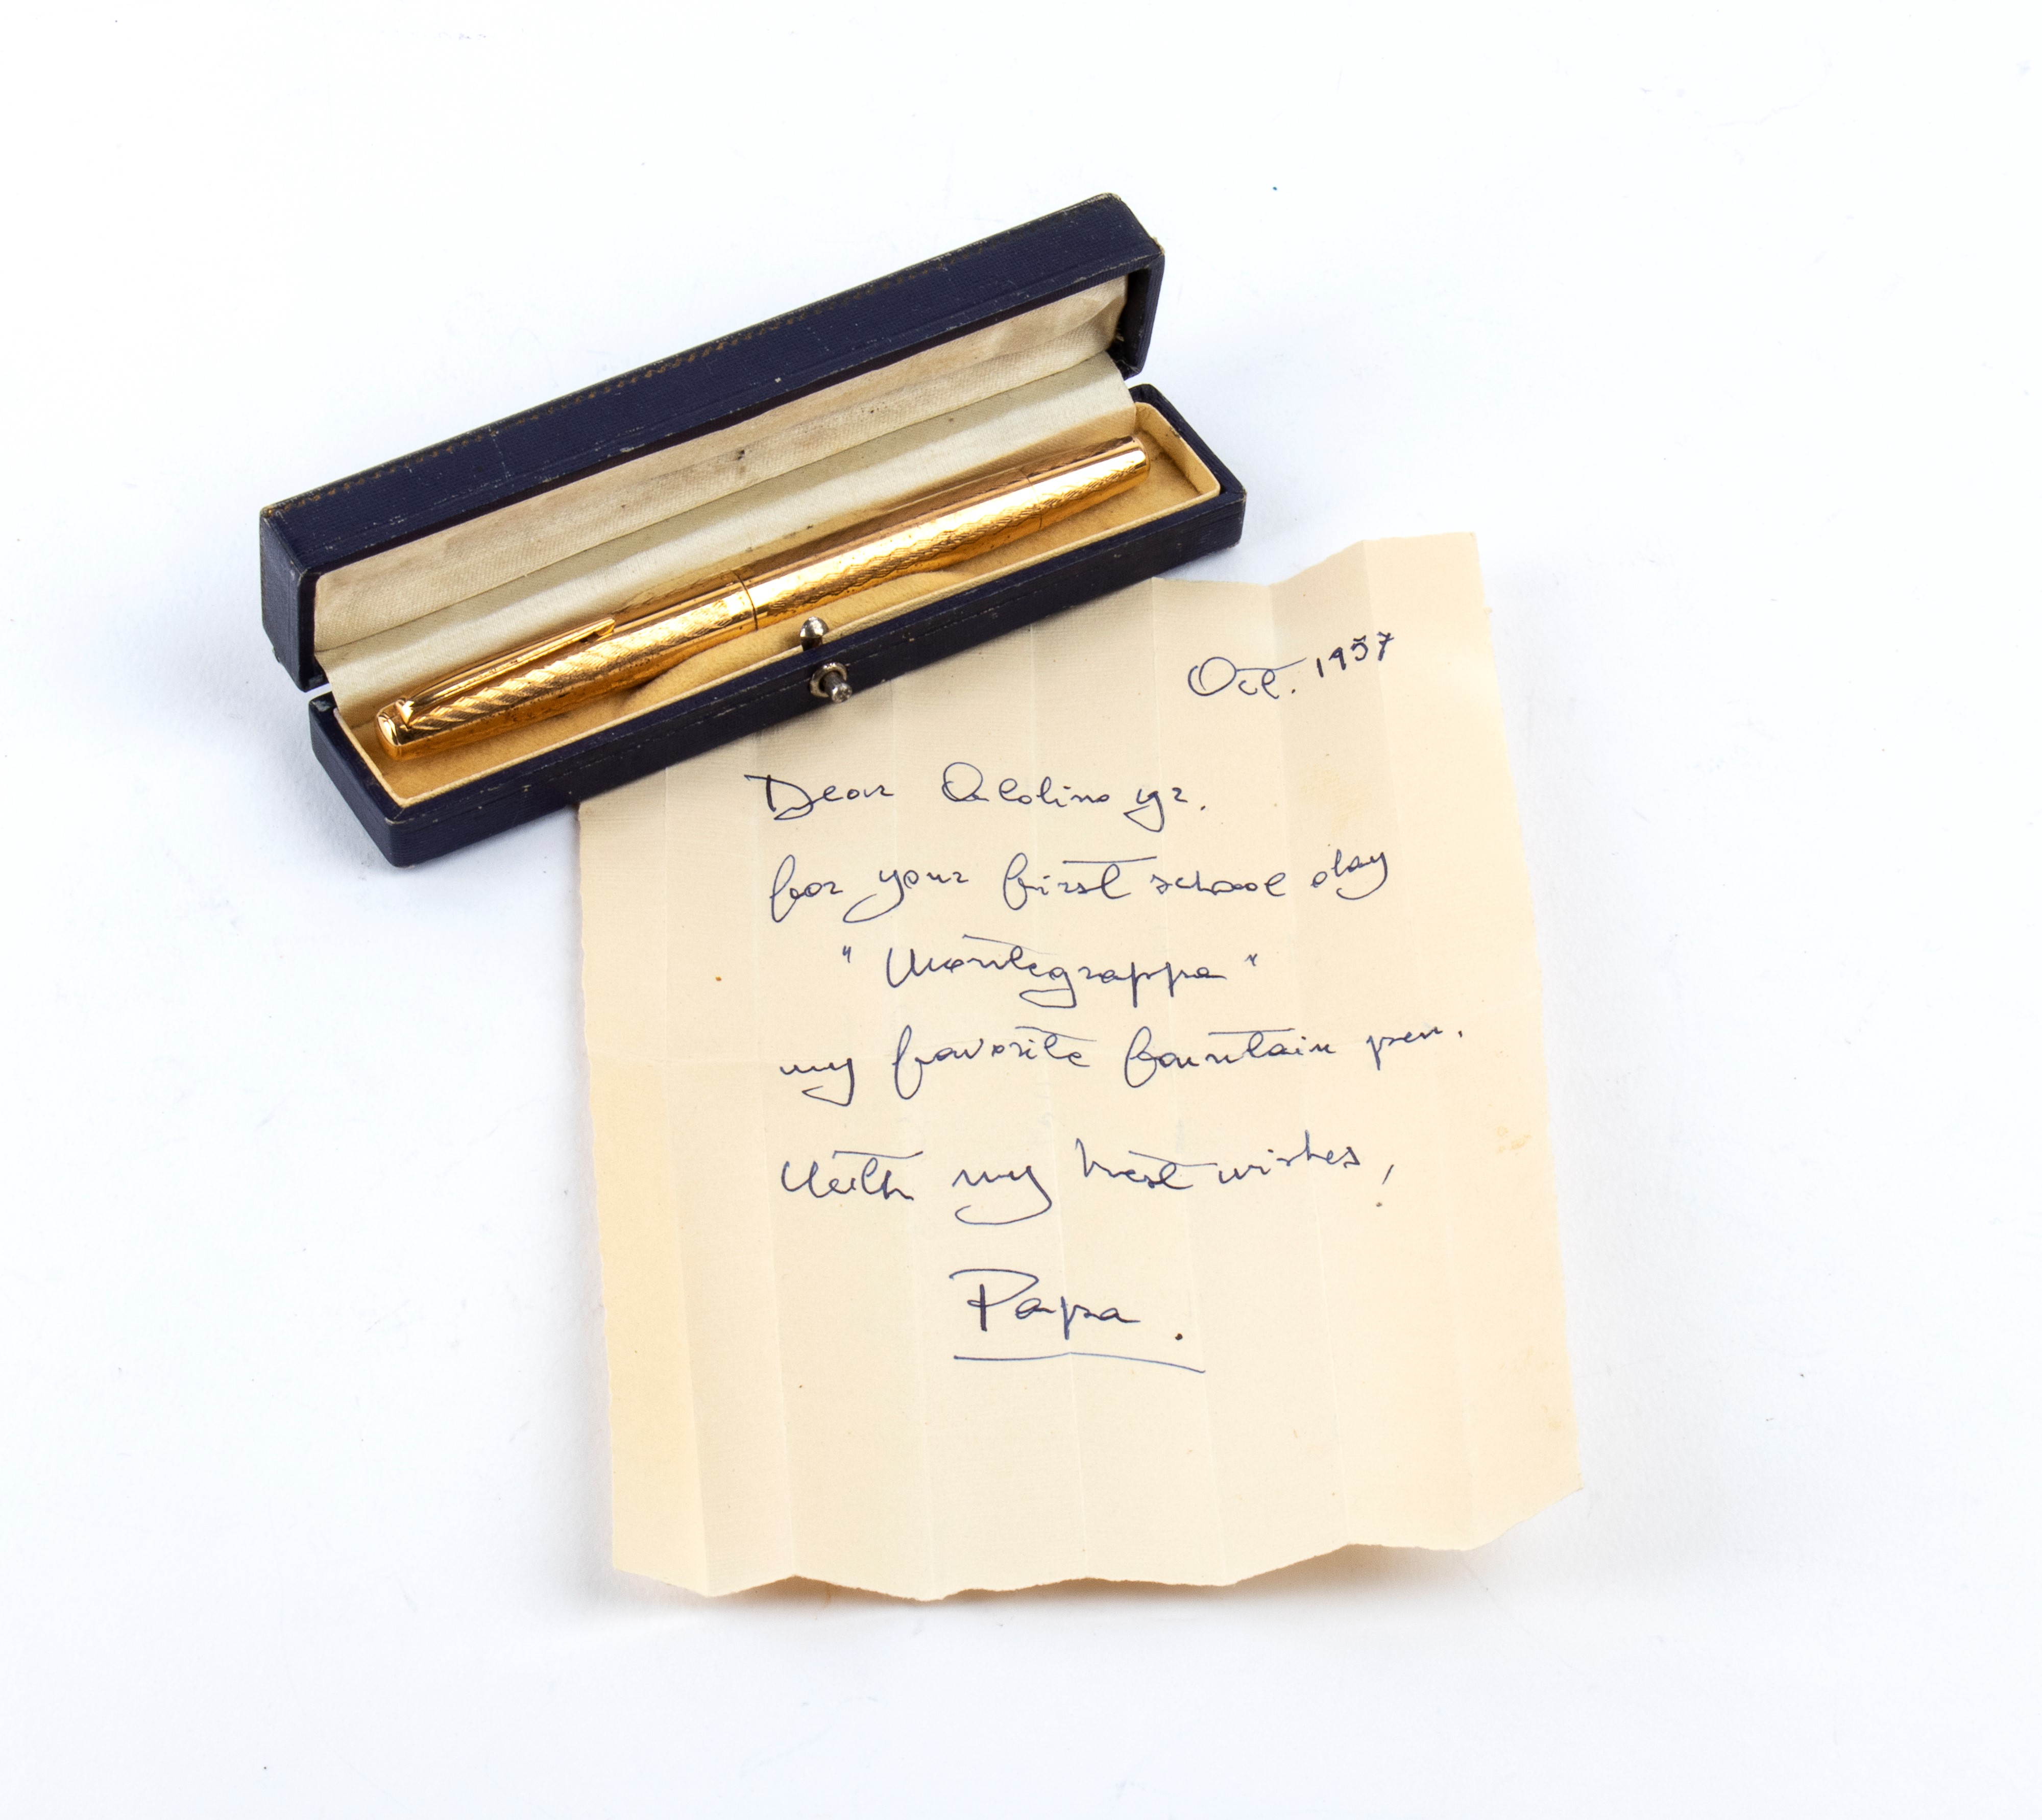 Oct. 1957
Dear Aldolino yr.
for your first school day
"Montegrappa"
my favorite fountain pen.
With my best wishes,
Papa.